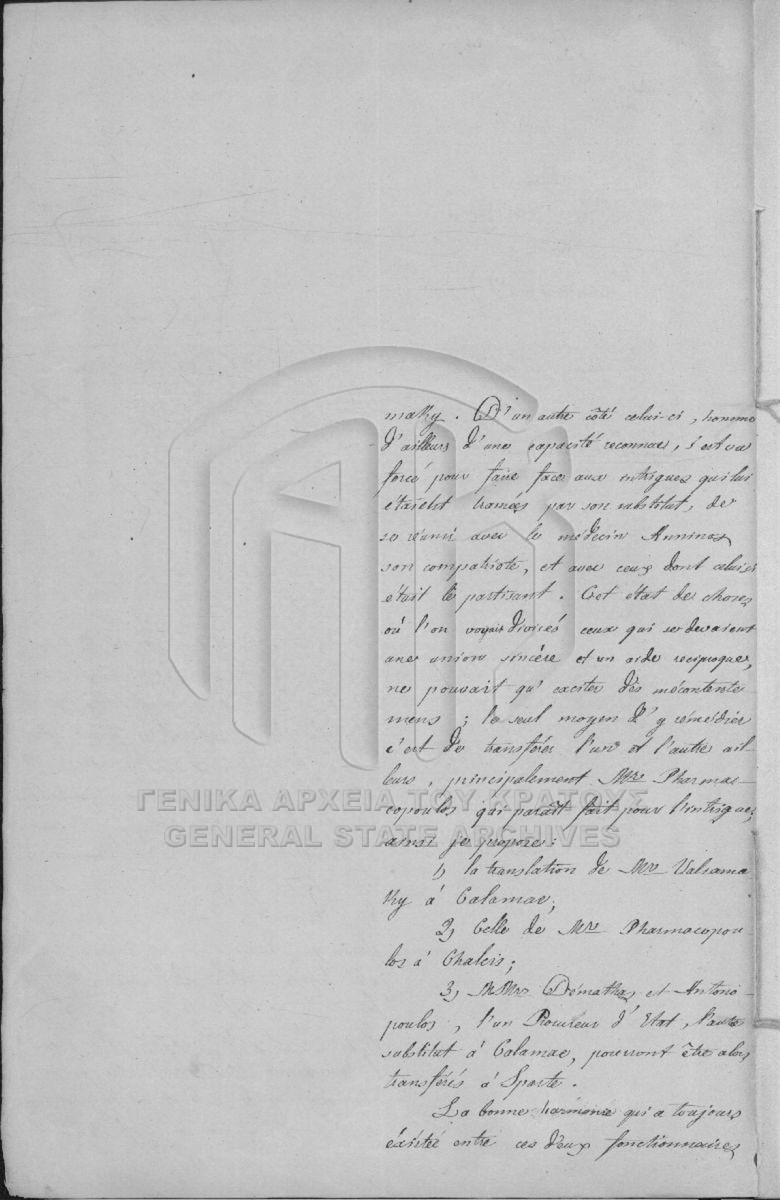 maky. D'un autre côté celui-ci, homme
d'ailleurs d'une capacité reconnue, s'est vu
forcé pour faire face aux intrigues qui lui
étaient tramées par son substitut, de
se réunir avec le médecin Anninos
son compatriote, et avec ceux dont celui-ci
était le partisant. Cet état de choses
où l'on voyait divisés ceux qui se devaient
une union sincère et un aide réciproque,
ne pouvait qu'exciter dès mécontente
mens; le seul moyen d'y rémédier
c'est de transférer l'un et l'autre ail-
leurs, principalement Mr. Pharma-
copoulos qui paraît fait pour l'intrigue;
ainsi je propose:
1) la translation de Mr. Valsama
ky à Calamae;
2) Celle de Mr. Pharmacopou
los à Chalcis;
3) MMrs Démathas et Antonio-
poulos, l'un Procureur d'Etat, l'autre
substitut à Calamae, pourront être alors
transférés à Sparte.
La bonne harmonie qui a toujours
éxistée entre ces deux fonctionnaires
ΓΕΝΙΚΑ ΑΡΧΕΙΑ ΤΟΥ ΚΡΑΤΟΥΣ
GENERAL STATE ARCHIVES